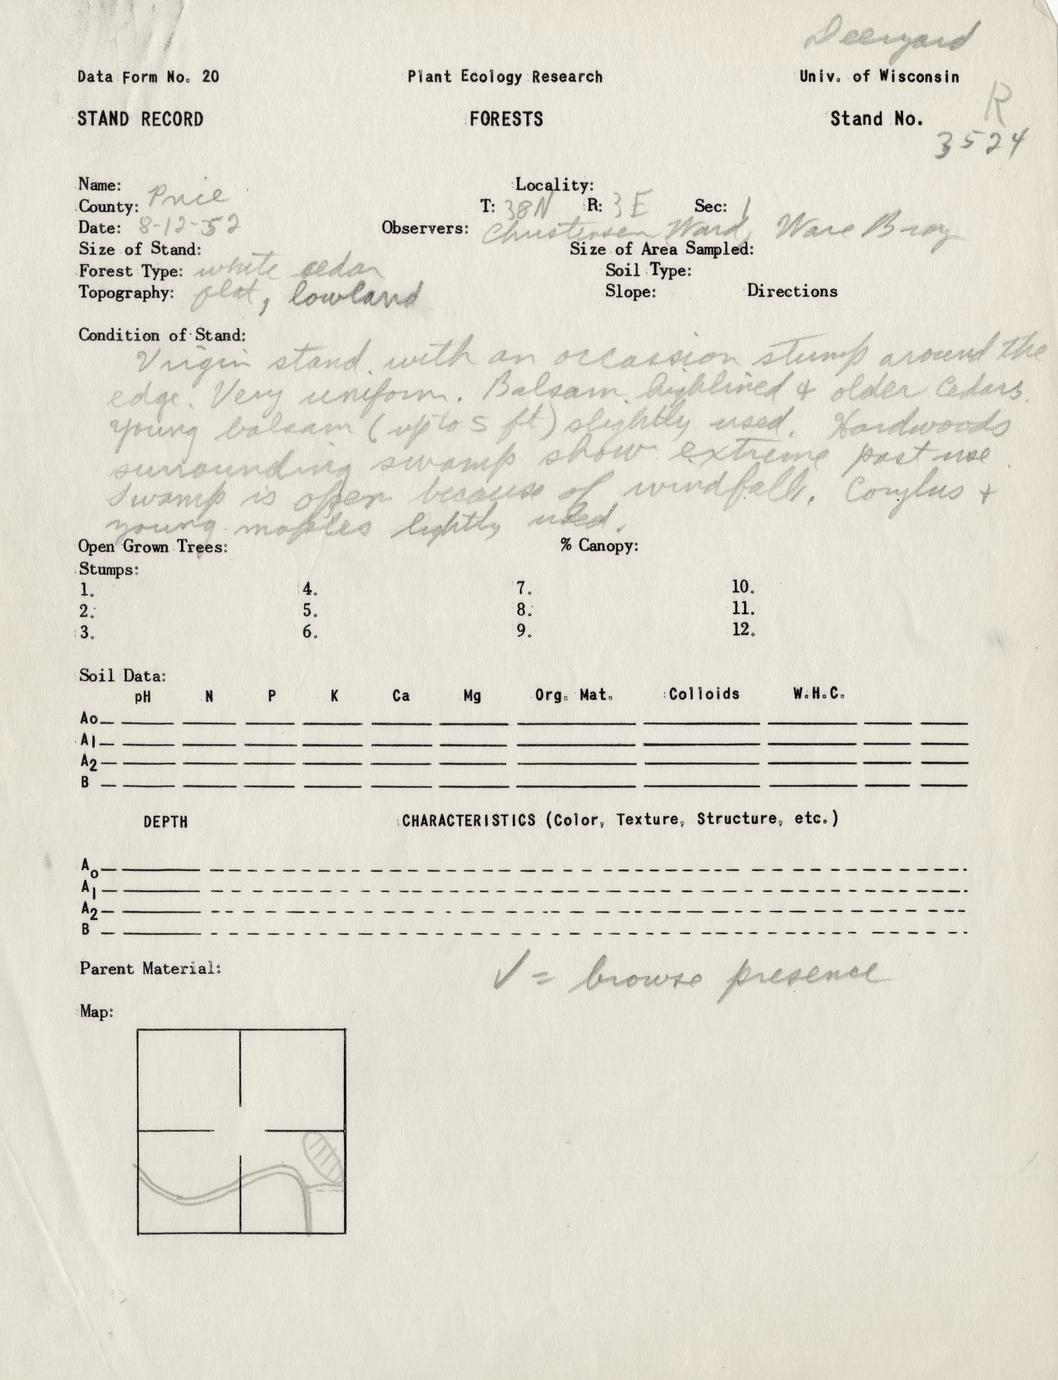 Deeryard
Data Form No. 20 Plant Ecology Research Univ. of Wisconsin
STAND RECORD FORESTS Stand No. R
3524
Name: Locality:
County: Price T: 38N R: 3E Sec: 1
Date: 8-12-52 Observers: Christensen Ward, Ware Bray
Size of Stand: Size of Area Sampled:
Forest Type: white cedar Soil Type:
Topography: flat, lowland Slope: Directions
Condition of Stand:
Virgin stand with an occassion stump around the
edge. Very uniform. Balsam highlined & older cedars.
young balsam (up to 5 ft) slightly used. Hardwoods
surrounding swamp show extreme past use.
Swamp is open because of windfall. Corylus +
young maples lightly used.
Open Grown Trees: % Canopy:
Stumps:
1. 4. 7. 10.
2. 5. 8. 11.
3. 6. 9. 12.
Soil Data:
pH N P K Ca Mg Org. Mat. Colloids W.H.C.
Ao
A1
A2
B
DEPTH CHARACTERISTICS (Color, Texture, Structure, etc.)
Ao
A1
A2
B
Parent Material: √ = browse presence
Map: